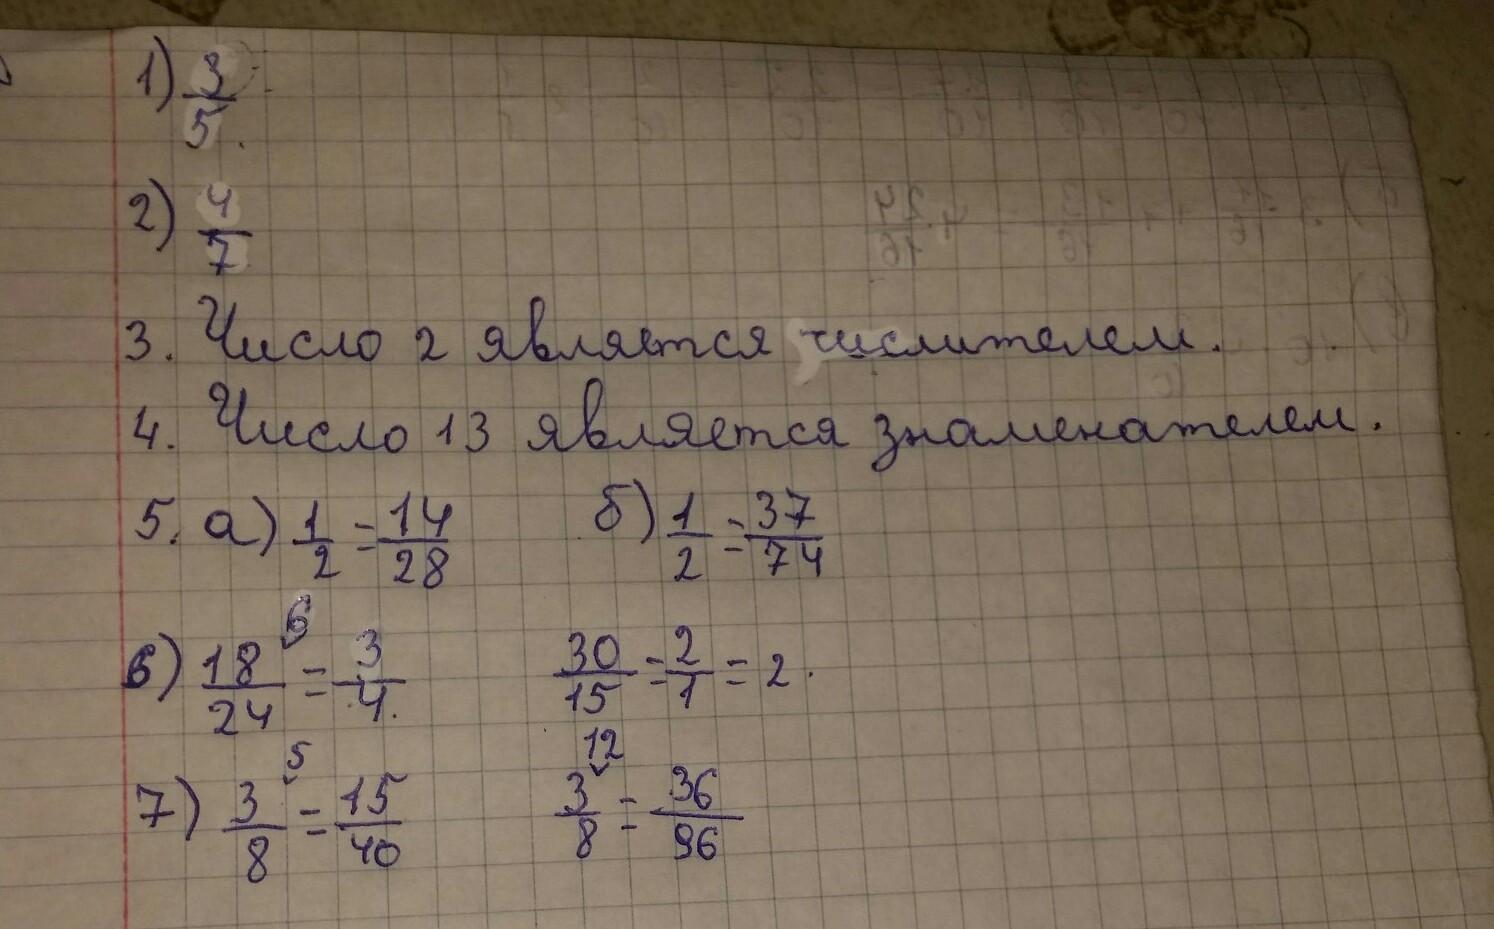 1) 3/5.
2) 4/7
3. Число 2 является числителем.
4. Число 13 является знаменателем.
5. а) 1/2 = 14/28 б) 1/2 = 37/74
6) 18/24 ⁶ = 3/4. 30/15 = 2/1 = 2.
7) 3/8 ⁵ = 15/40 3/8 ¹² = 36/96